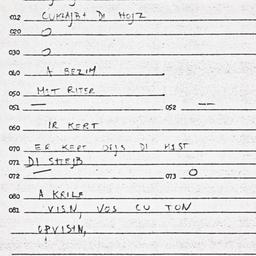 012 CUKLAJBT DI HOJZ
020 O
030 O
040 A BEZIM
050 MIT RITER
051 — 052 —
060 IR KERT
070 ER KERT DI MIST
071 DI SHEJB
072 073 O
080 A KRILE
081 VISN, VOS CU TON
OPVISHN,